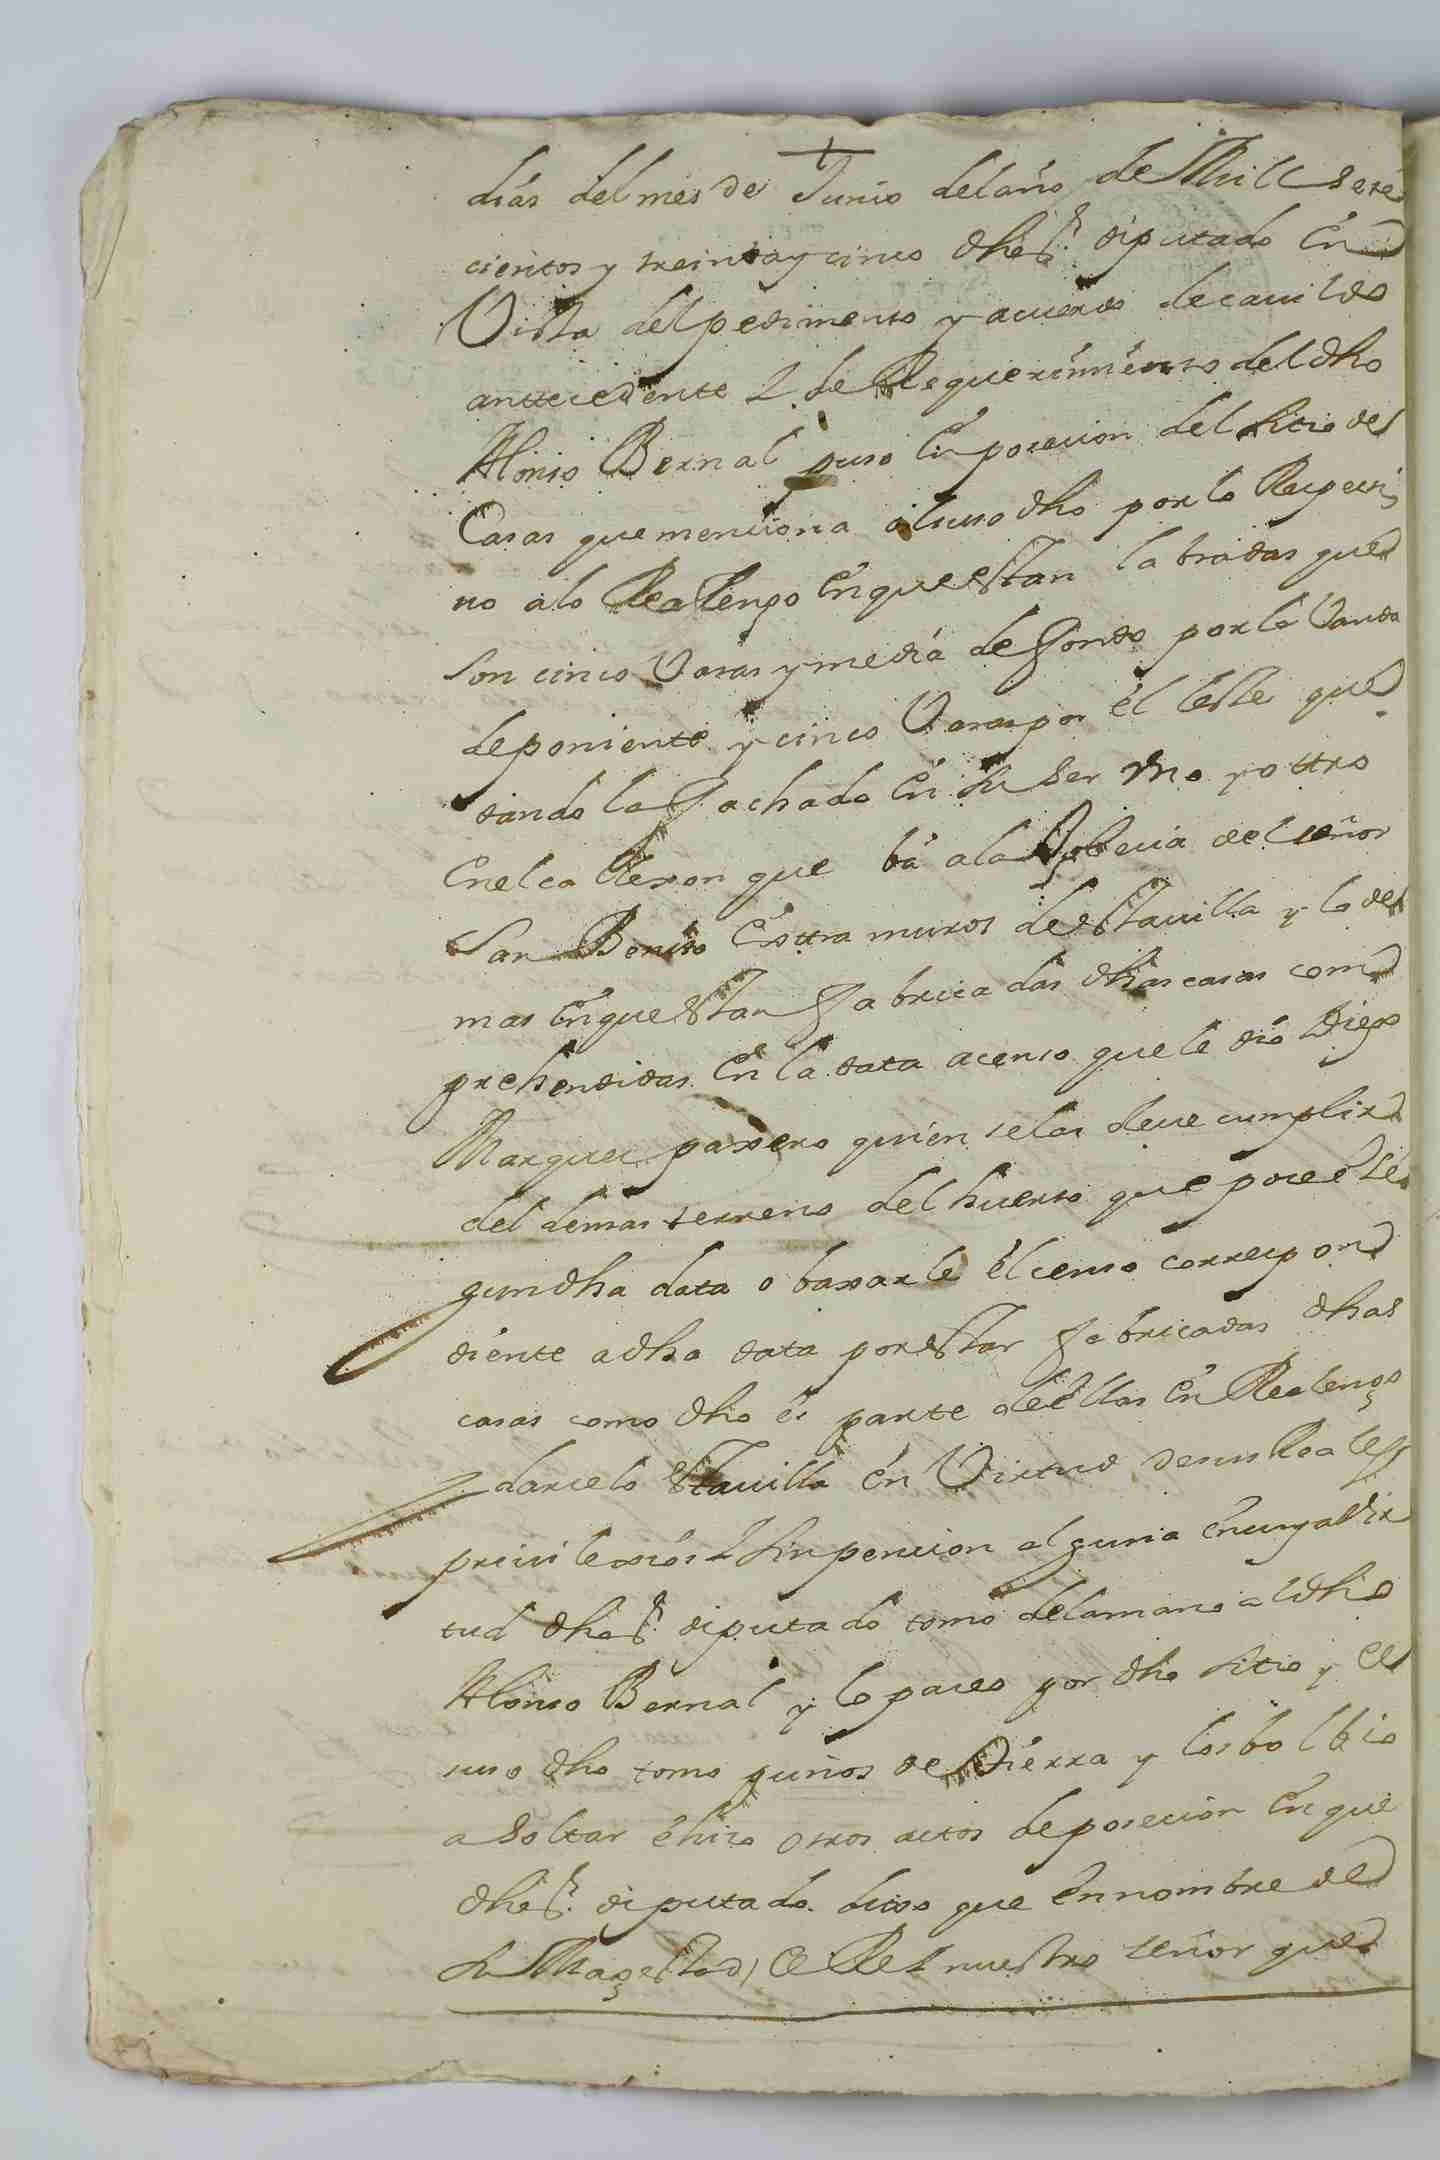 +
dias del mes de Junio del año de Mill sete
cientos y treinta y cinco dho Sr. diputado En
Vista del pedimento y acuerdo de cauildo
anttecedente I de Requerimiento del dho
Alonso Bernal puso En posecion del sitio de
Casas que menciona al suso dho por lo Respecti
uo a lo Realengo En que estan labradas que
son cinco Varas y media de fondo por la Vanda
de poniente y cinco Varas por el leste que
dando la fachada En su ser Vno y ottro
En el calleron que ba a la Yglecia del señor
San Benito Exttra muros de esta uilla y lo de
mas En que estan fabricadas dhas casas com
prehendidas En la data acenso que le dio Diego
Marques parrero quien se las deue cumplir
del demas terreno del huerto que posee se
gun dha data o baxarle el censo correspon
diente a dha data por estar fabricadas dhas
casas como dho es parte de ellas En Realengo
darcelo Esta uilla en Virtud de sus Reales
priuilexios I sin pencion alguna en cuya Vir
tud dho Sr. diputado tomo de la mano al dho
Alonso Bernal y lo paceo por dho sitio y el
suso dho tomo puños de tierra y los bolbio
a soltar e hizo otros actos de posecion En que
dho Sr. diputado dixo que En nombre de
su Magestad el Rei nuestro señor que